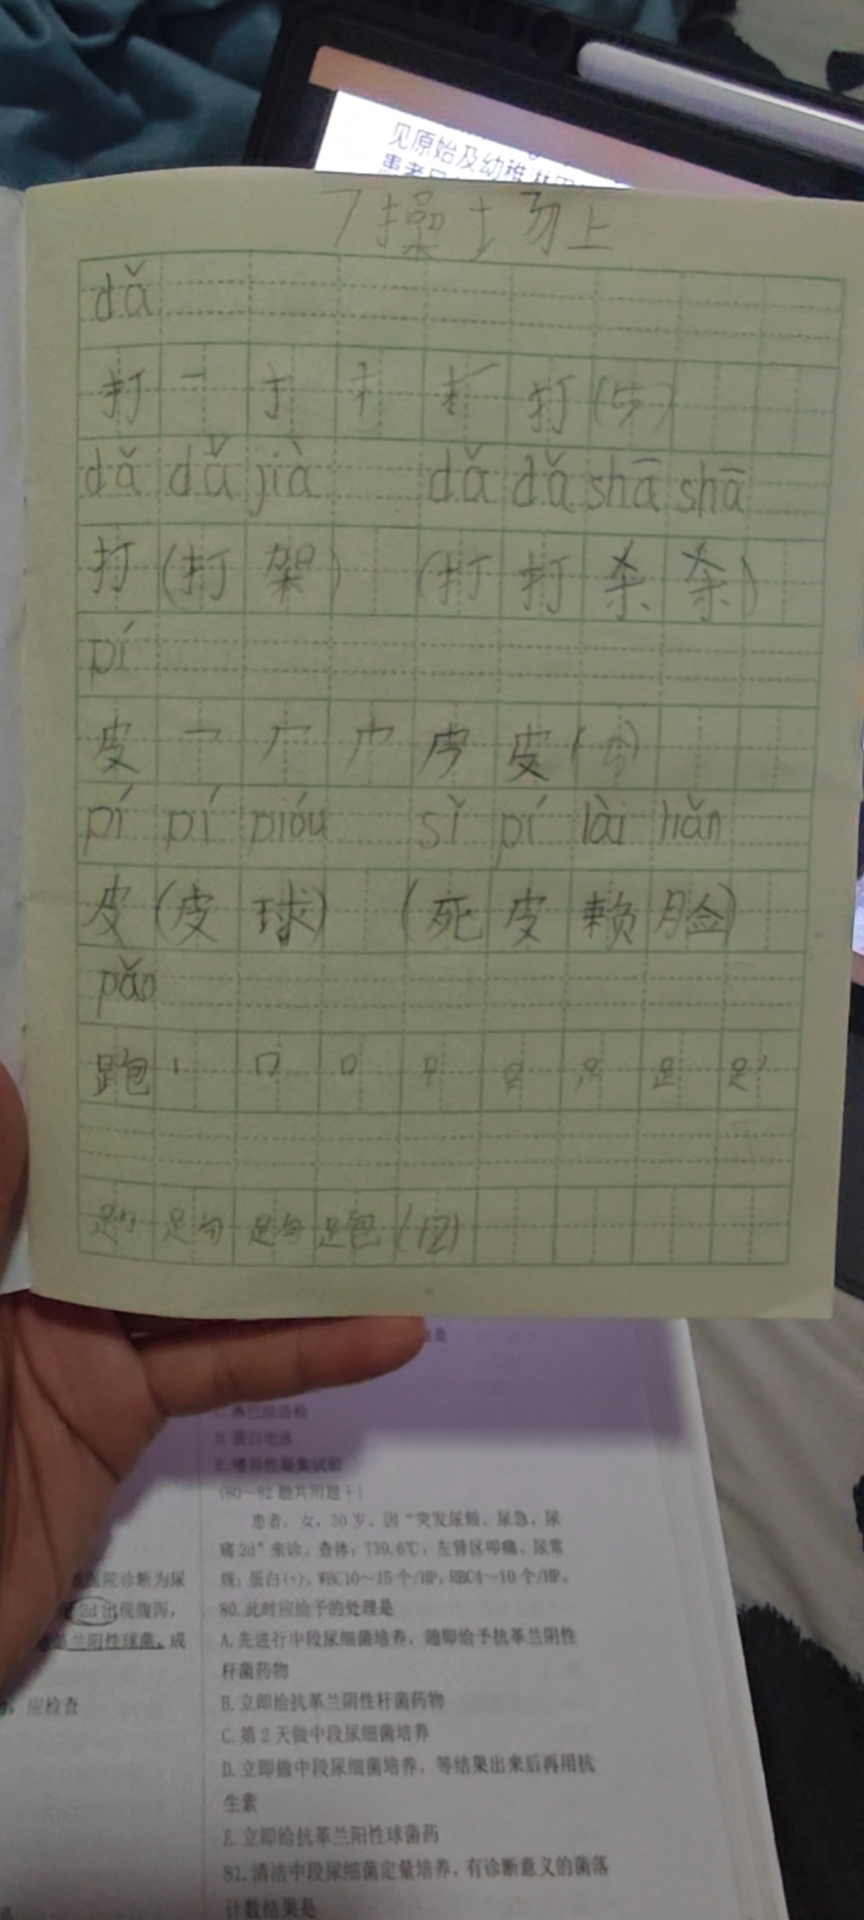 见原始及幼稚
7操场上
dǎ
打 一 扌 扌 打 打(5)
dǎ dǎ jià dǎ dǎ shā shā
打(打架) (打打杀杀)
pí
皮 皮(5)
pí pí pióu sǐ pí lài liǎn
皮(皮球) (死皮赖脸)
pǎo
跑 丨 口 口
跑(12)
D.蛋白电泳
E.嗜异性凝集试验
(80～82题共用题干)
患者，女，30岁。因“突发尿频、尿急、尿
痛2d”来诊。查体：T39.6℃，左肾区叩痛。尿常
规：蛋白(+)，WBC10～15个/HP，RBC4～10个/HP。
80.此时应给予的处理是
A.先进行中段尿细菌培养，随即给予抗革兰阴性
杆菌药物
B.立即给抗革兰阴性杆菌药物
C.第2天做中段尿细菌培养
D.立即做中段尿细菌培养，等结果出来后再用抗
生素
E.立即给抗革兰阳性球菌药
81.清洁中段尿细菌定量培养，有诊断意义的菌落
计数结果是
医院诊断为尿
2d出现腹泻，
革兰阳性球菌，成
，应检查